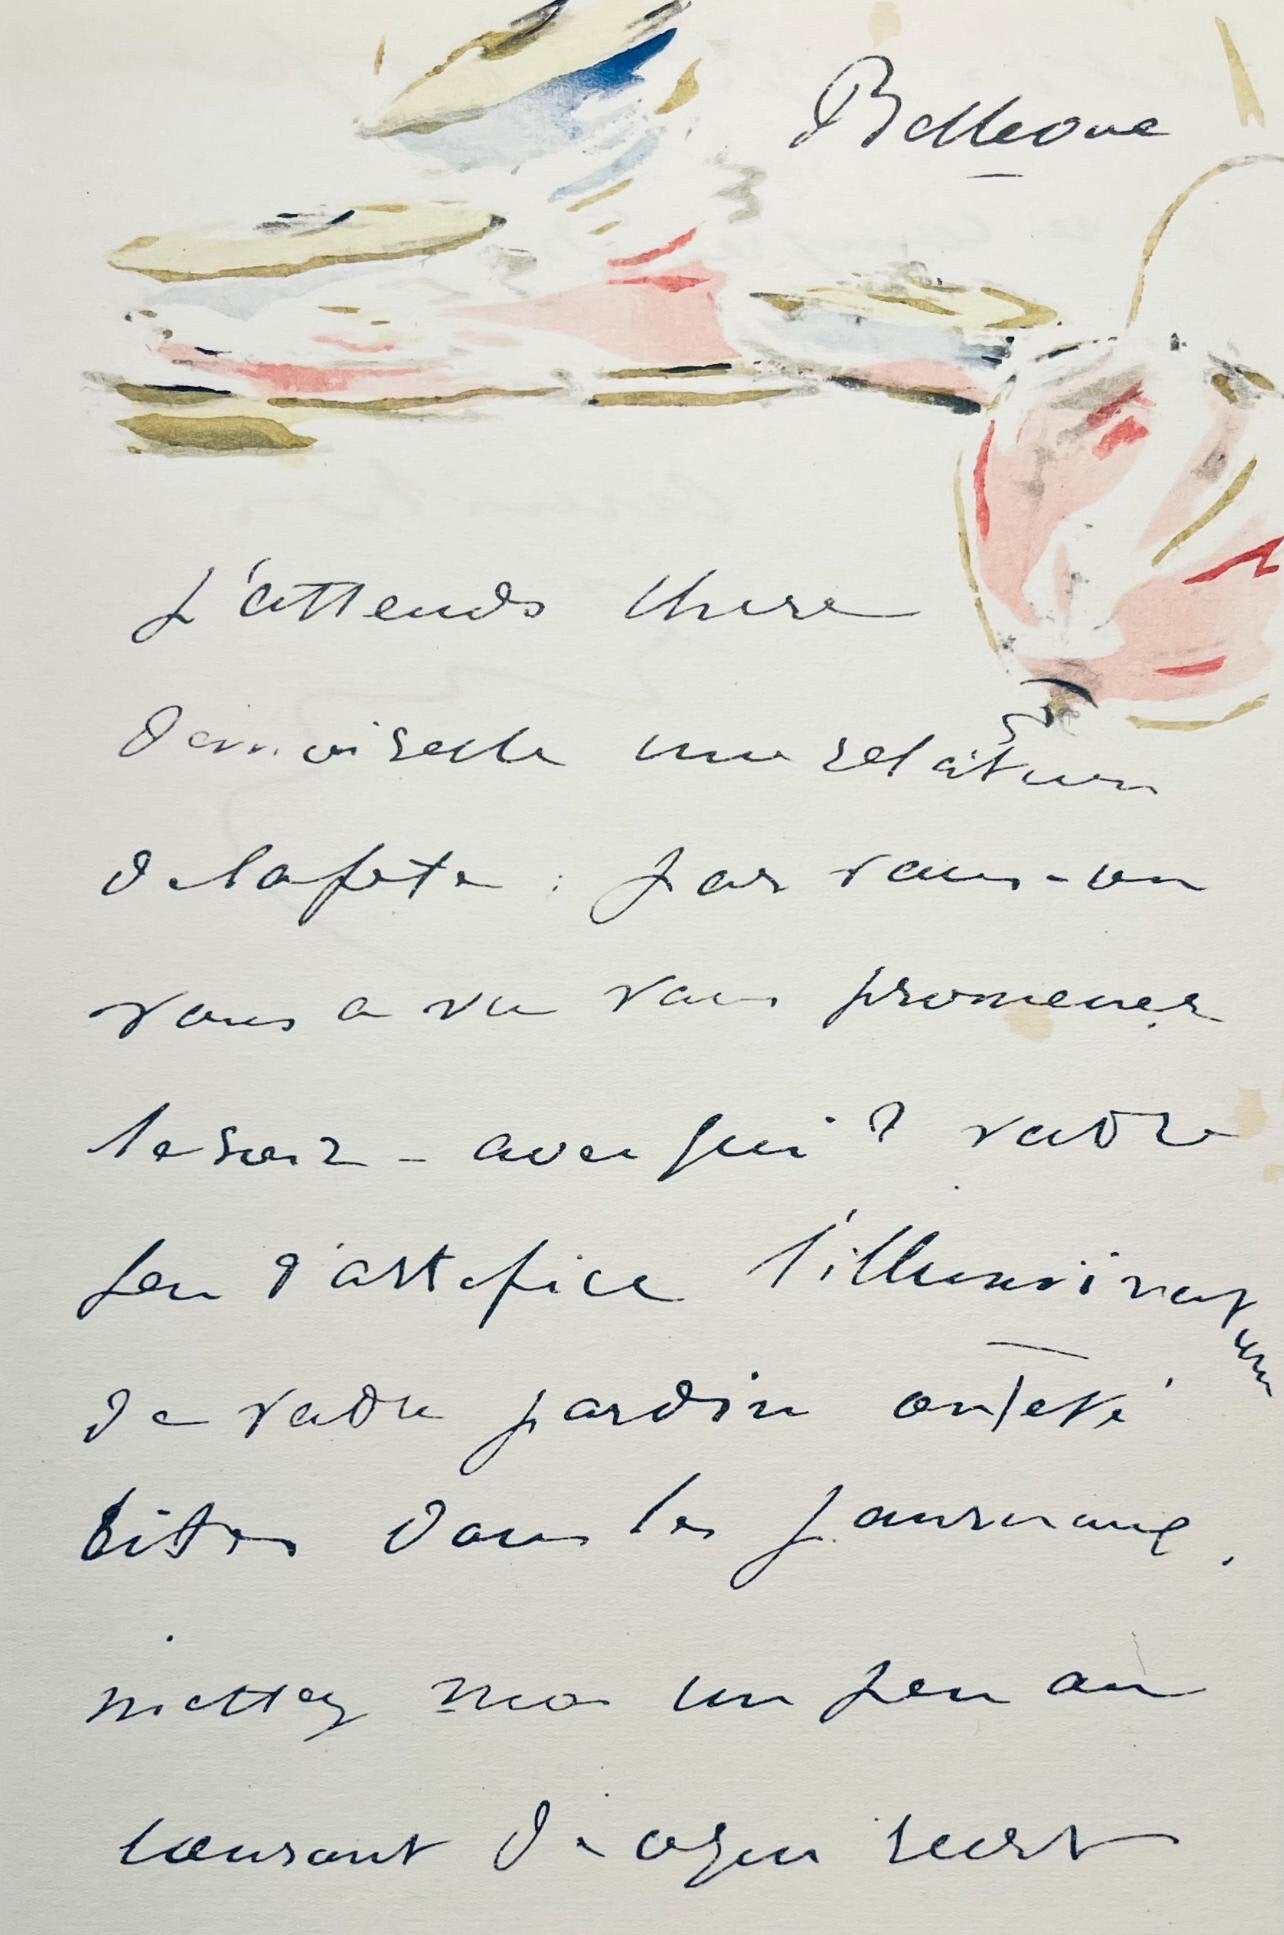 Bellevue
j'attends chère
demoiselle une relation
de la fete : par vous - on
vous a vu vous promener
le soir - avec qui ? votre
feu d'artifice l'illumination
de votre jardin ont été
cités dans les journaux.
mettez moi un peu au
courant de ce qui